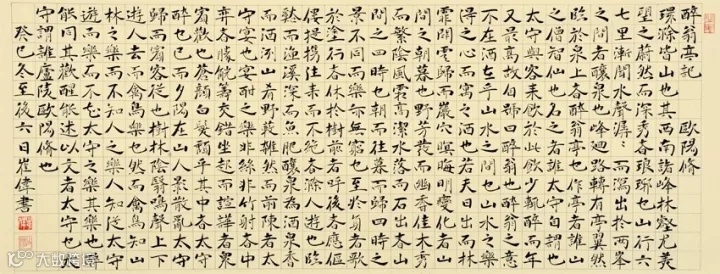 醉翁亭記 歐陽修
環滁皆山也其西南諸峰林壑尤美
望之蔚然而深秀者琅琊也山行六
七里漸聞水聲潺〻而瀉出於兩峯
之間者釀泉也峰迴路轉有亭翼然
臨於泉上者醉翁亭也作亭者誰山
之僧智仙也名之者誰太守自謂也
太守與客来飲於此飲少輒醉而年
又最高故自號曰醉翁也醉翁之意
不在酒在乎山水之間也山水之樂
得之心而寓之酒也若夫日出而林
霏開雲歸而巖穴暝晦明變化者山
間之朝暮也野芳發而幽香佳木秀
而繁陰風霜高潔水落而石出者山
間之四時也朝而往暮而歸四時之
景不同而樂亦無窮也至於負者歌
於塗行者休於樹前者呼後者應傴
僂提携往来而不絕者滁人遊也臨
谿而漁谿深而魚肥釀泉為酒泉香
而酒洌山肴野蔌雜然而前陳者太
守宴也宴酣之樂非絲非竹射者中
弈者勝觥籌交錯坐起而諠譁者衆
賓歡也蒼顏白髮頹乎其中者太守
醉也已而夕陽在山人影散亂太守
歸而賓客從也樹林陰翳鳴聲上下
遊人去而禽鳥樂也然而禽鳥知山
林之樂而不知人之樂人知從太守
遊而樂而不知太守之樂其樂也醉
能同其歡醒能述以文者太守也太
守謂誰廬陵歐陽修也
癸巳冬至後六日崔偉書
大数跨境